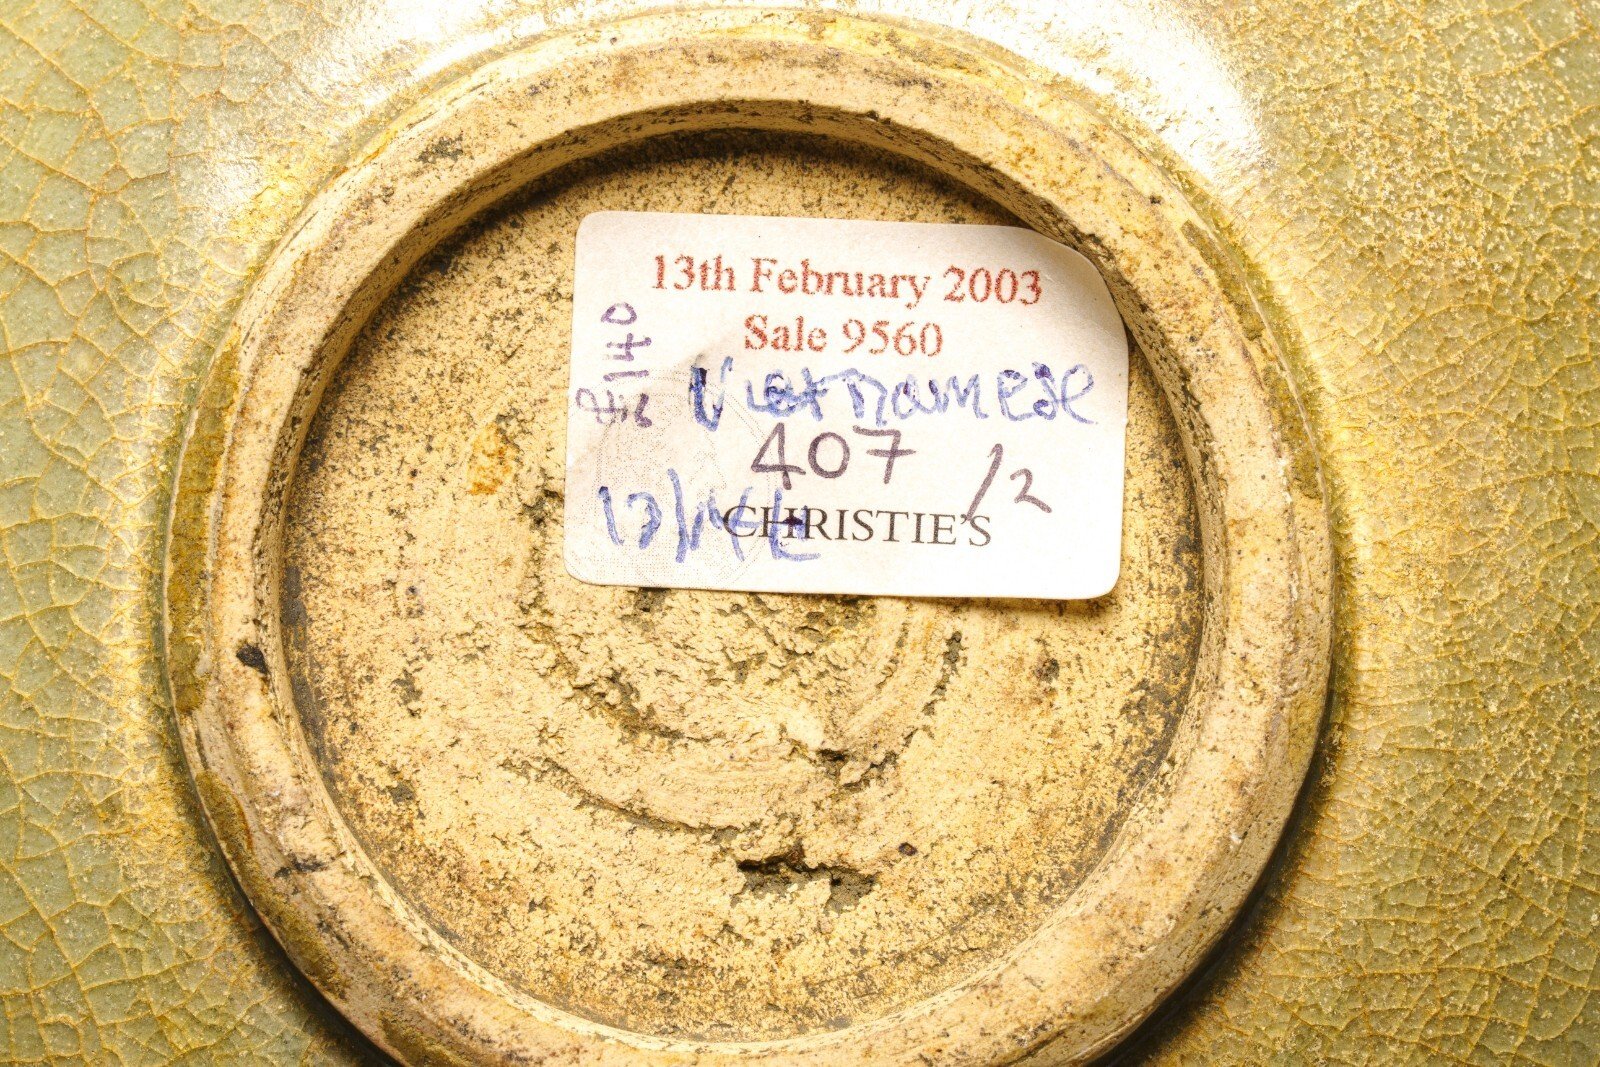 13th February 2003
Sale 9560
Vietnamese
407 /2
CHRISTIE'S